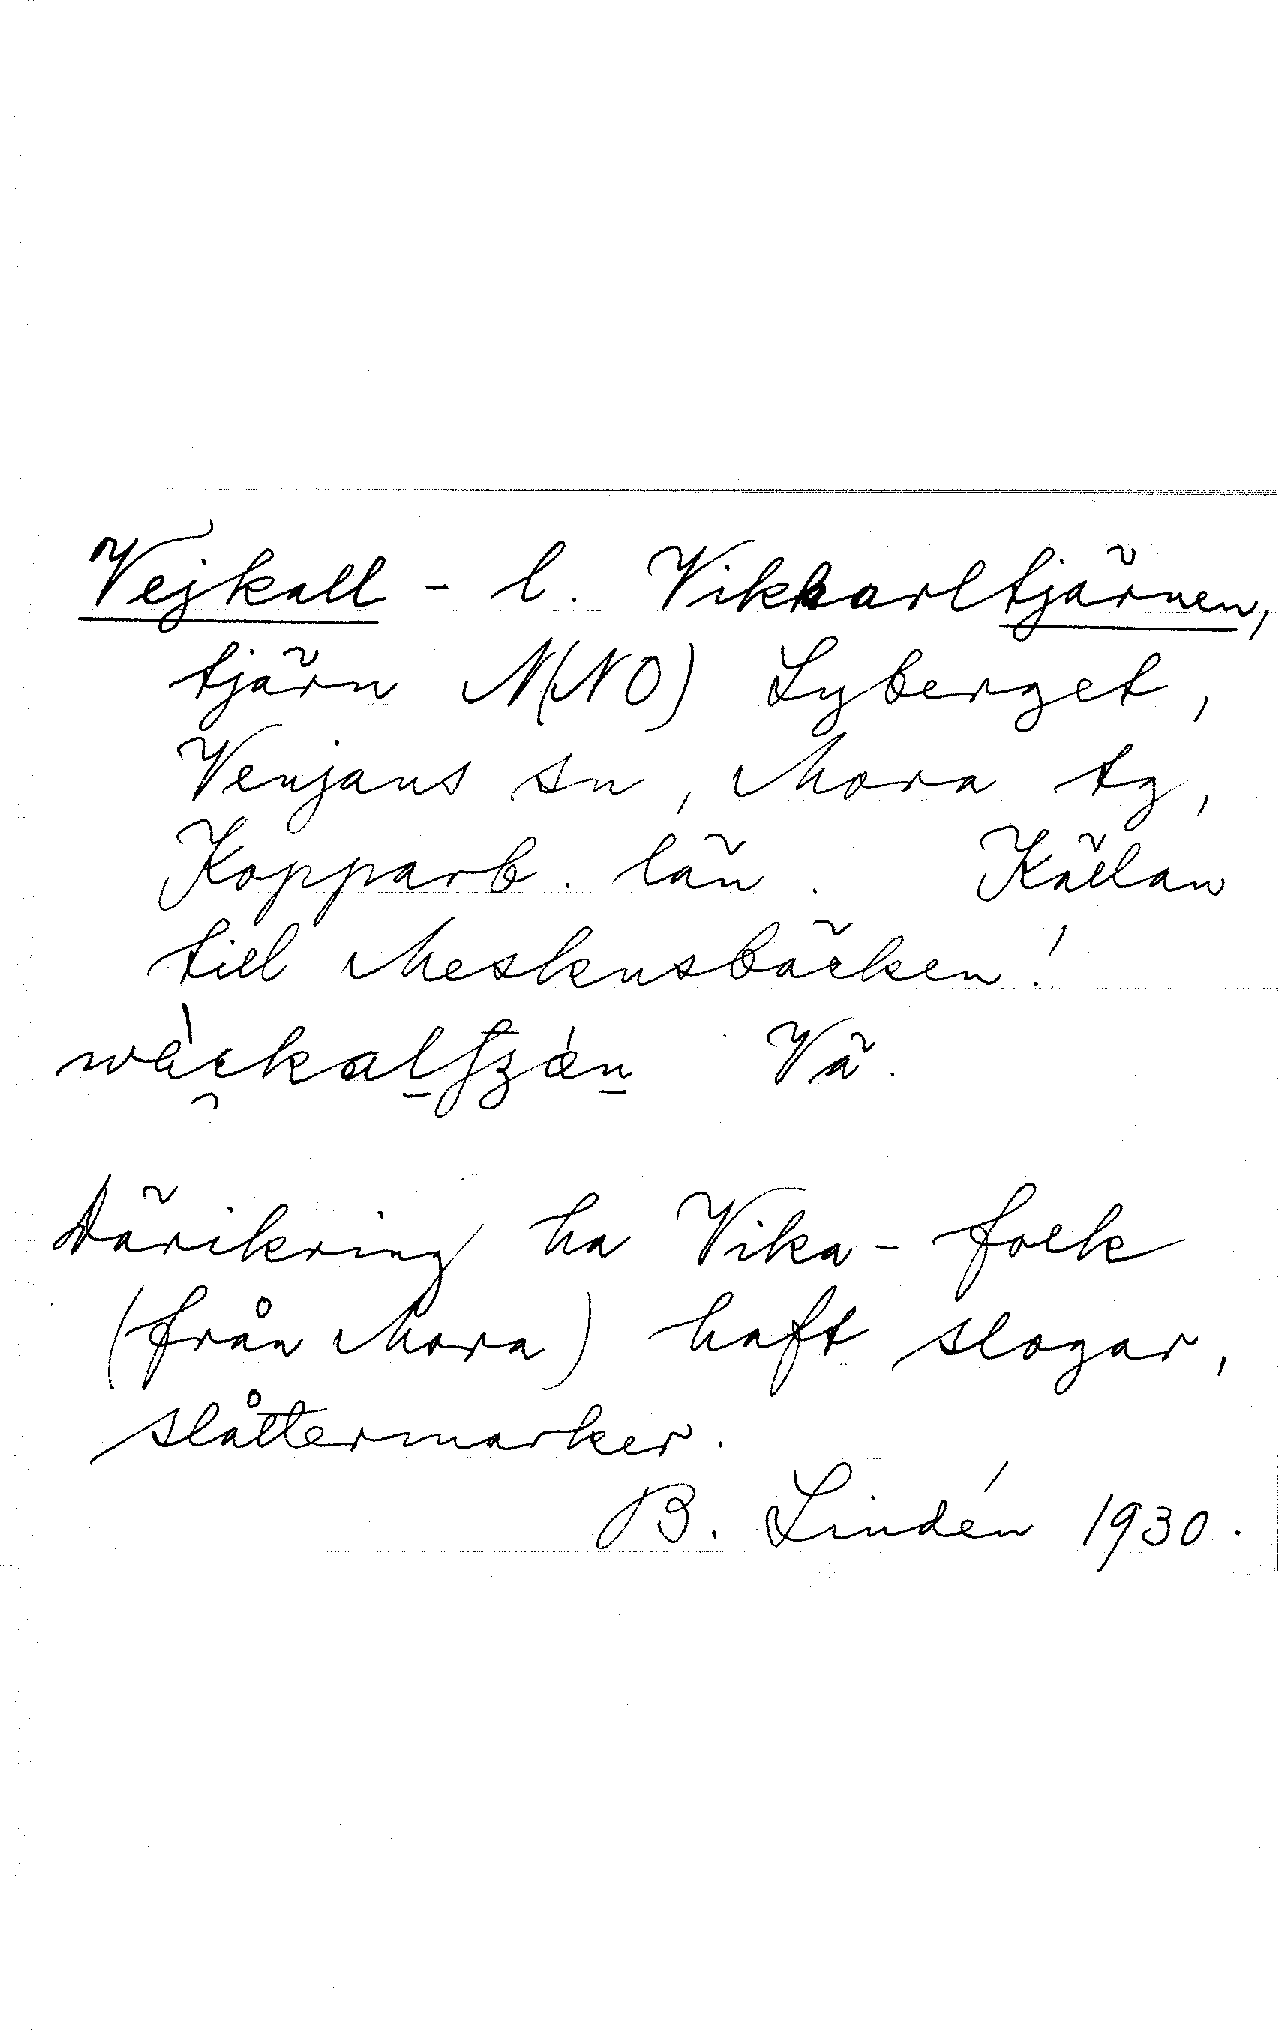 Vejkall - l. Vikkarltjärnen,
tjärn N(NO) Lyberget,
Venjans sn, Mora tg,
Kopparb. län. Källan
till Meskusbäcken!
Vä.
Därikring ha Vika-folk
(från Mora) haft slogar,
slåttermarker.
B. Lindén 1930.